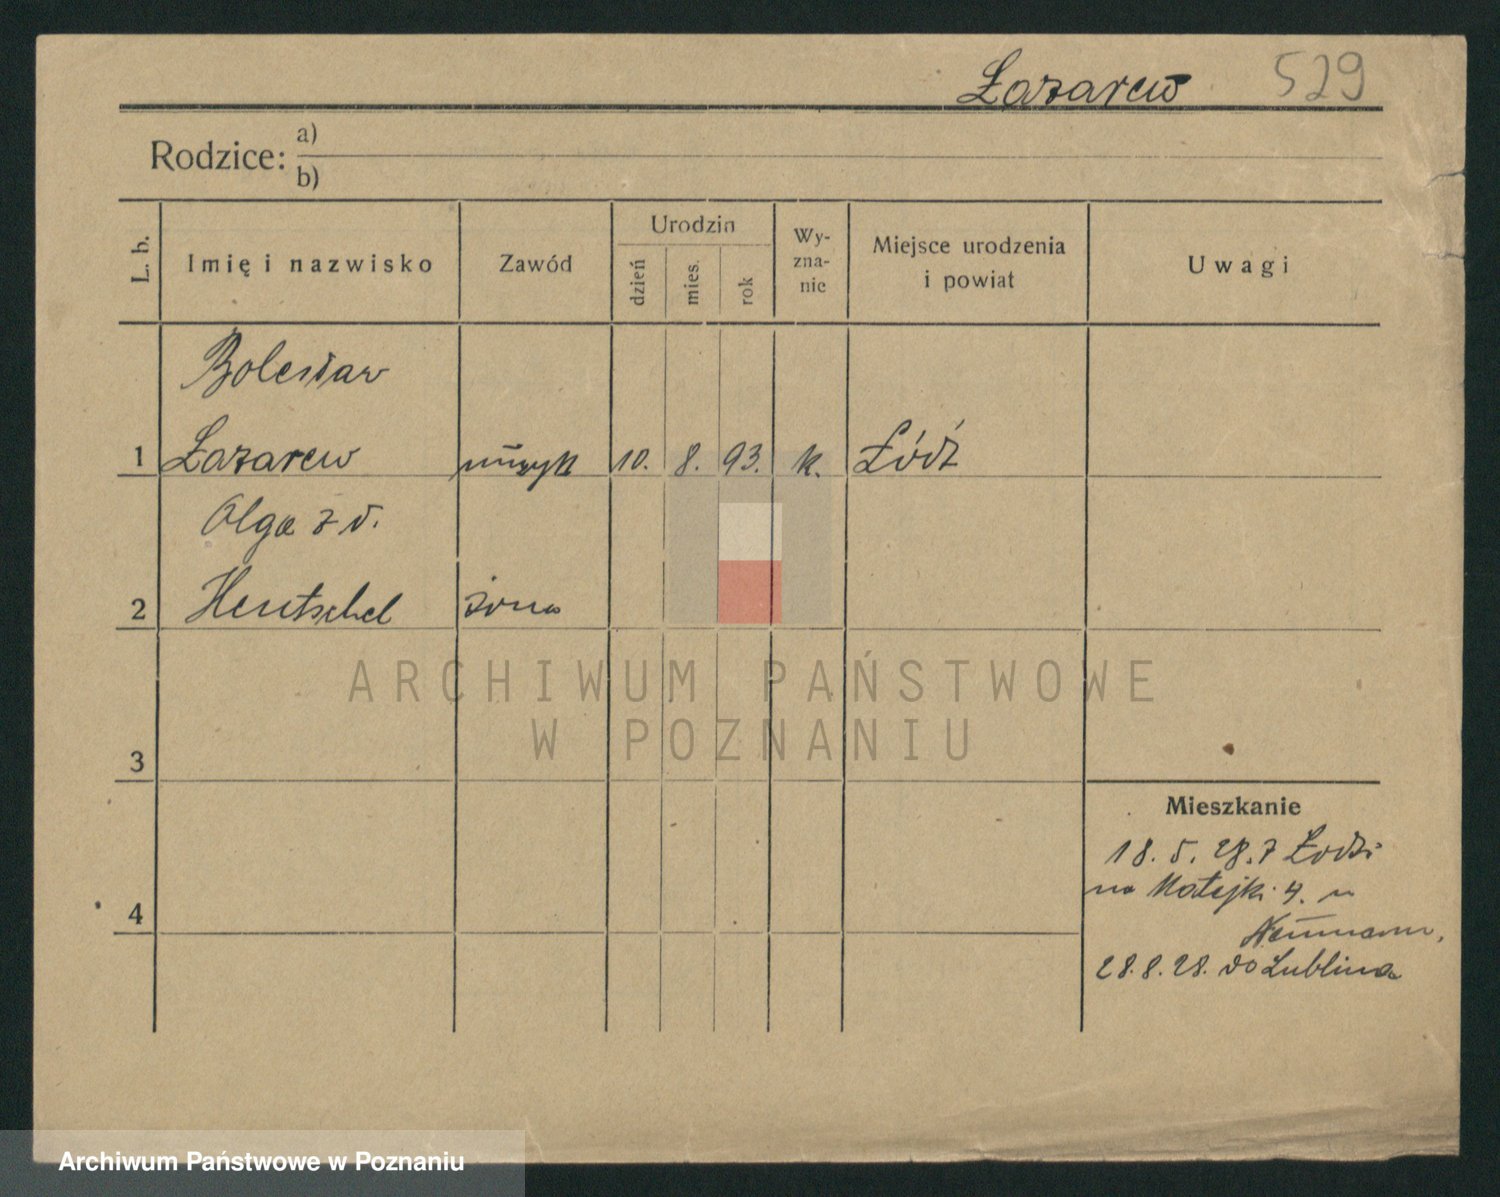 Łazarew 529
Rodzice: a)
b)
L. b. Imię i nazwisko Zawód Urodzin dzień mies. rok Wy-zna-nie Miejsce urodzenia i powiat Uwagi
Bolesław
1 Łazarew muzyk 10. 8. 93. k. Łódź
Olga z d.
2 Hentschel żona
ARCHIWUM PAŃSTWOWE
W POZNANIU
3
Mieszkanie
18. 5. 28. z Łodzi
na Matejki 4. u
4
Neumann,
28. 8. 28. do Lublina
Archiwum Państwowe w Poznaniu